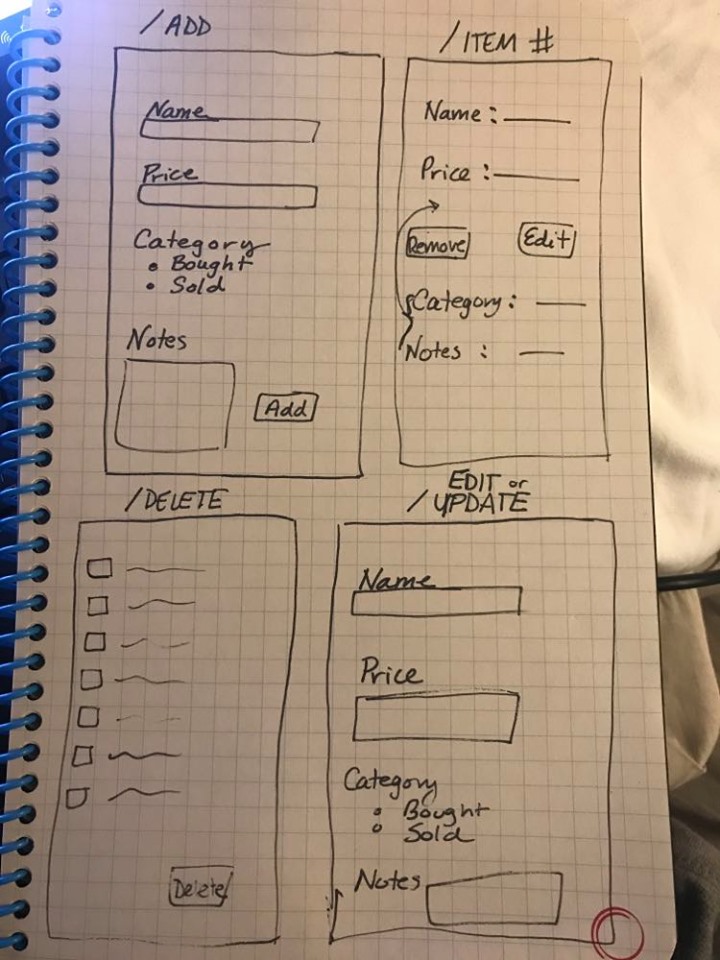 /ADD
Name
Price
Category
• Bought
• Sold
Notes
Add
/ITEM #
Name :
Price :
Remove
Edit
Category :
Notes :
/DELETE
Delete
/EDIT or
UPDATE
Name
Price
Category
• Bought
• Sold
Notes